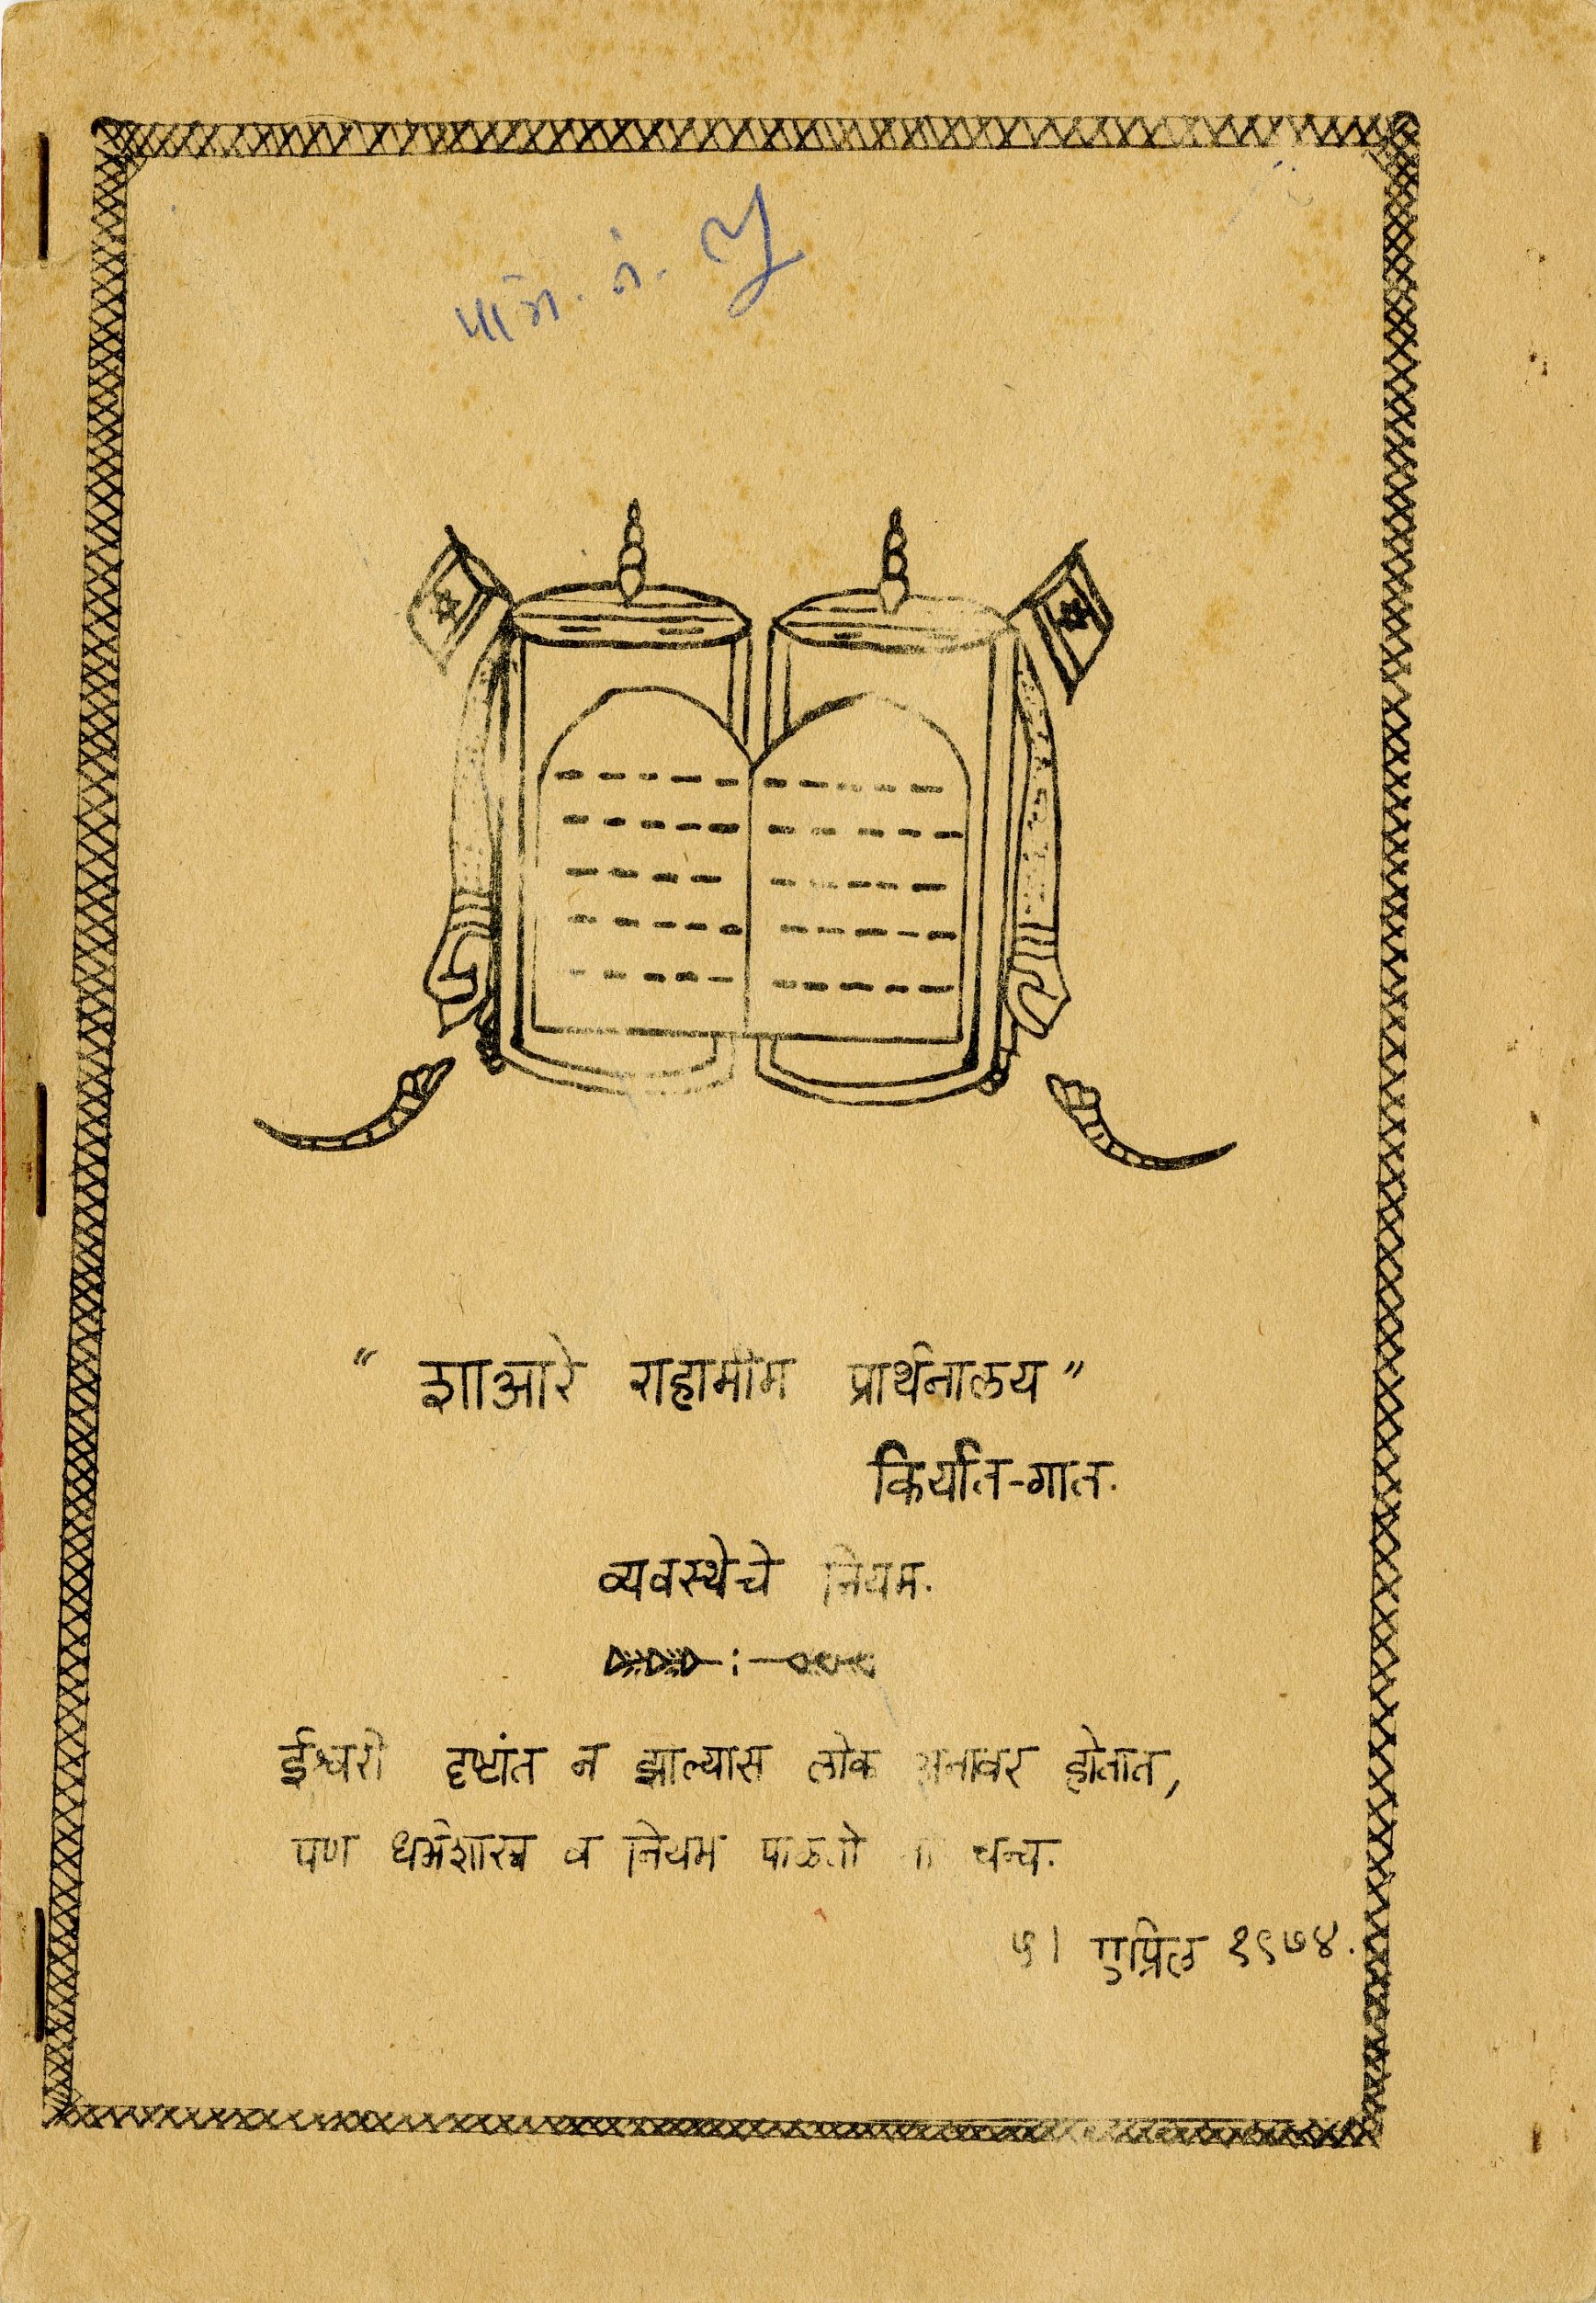 " शाआरे राहामीम प्रार्थनालय "
किर्यात-गात.
व्यवस्थेचे नियम.
ईश्वरी दृष्टांत न झाल्यास लोक अनावर होतात,
पण धर्मशास्त्र व नियम पाळतो तो धन्य.
एप्रिल १९७४.